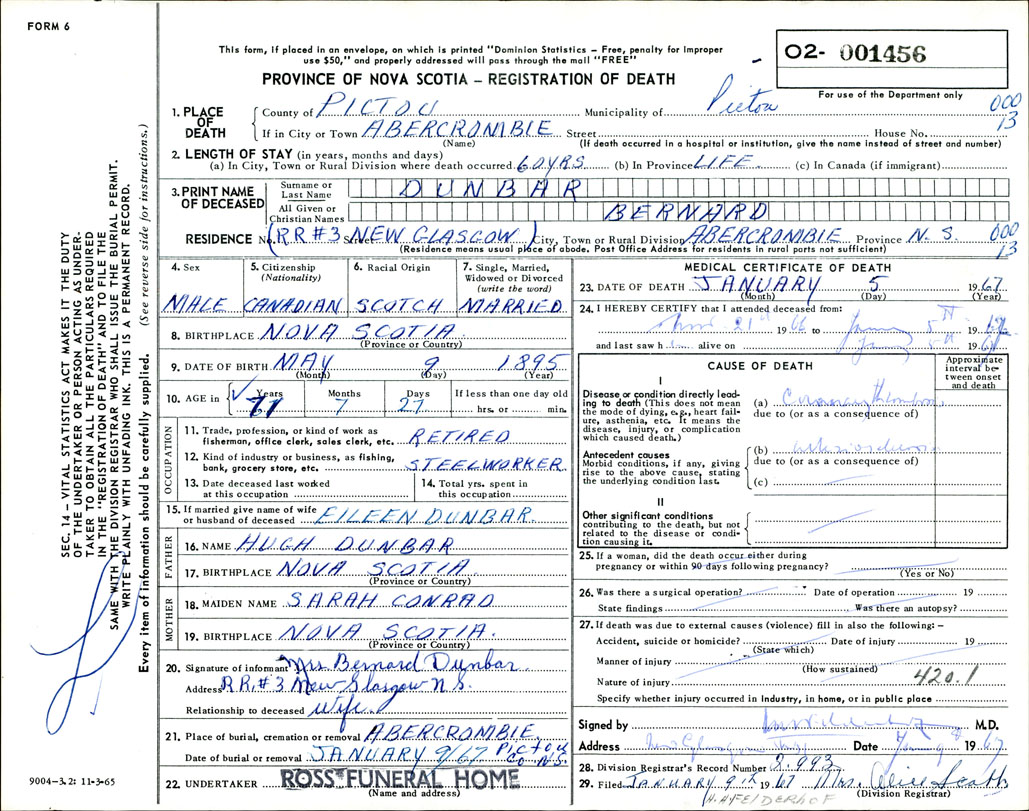 FORM 6
This form, if placed in an envelope, on which is printed "Dominion Statistics – Free, penalty for improper
use $50," and properly addressed will pass through the mail "FREE"
PROVINCE OF NOVA SCOTIA – REGISTRATION OF DEATH
O2- 001456
For use of the Department only
SEC. 14 – VITAL STATISTICS ACT MAKES IT THE DUTY
OF THE UNDERTAKER OR PERSON ACTING AS UNDER-
TAKER TO OBTAIN ALL THE PARTICULARS REQUIRED
IN THE "REGISTRATION OF DEATH" AND TO FILE THE
SAME WITH THE DIVISION REGISTRAR WHO SHALL ISSUE THE BURIAL PERMIT.
WRITE PLAINLY WITH UNFADING INK. THIS IS A PERMANENT RECORD.
Every item of information should be carefully supplied. (See reverse side for instructions.)
1. PLACE OF DEATH
County of PICTOU Municipality of Pictou 000
If in City or Town ABERCROMBIE Street House No. 13
(Name) (If death occurred in a hospital or institution, give the name instead of street and number)
2. LENGTH OF STAY (in years, months and days)
(a) In City, Town or Rural Division where death occurred 60 YRS (b) In Province LIFE (c) In Canada (if immigrant)
3. PRINT NAME OF DECEASED
Surname or Last Name DUNBAR
All Given or Christian Names BERNARD
RESIDENCE No. (RR #3 Street NEW GLASGOW) City, Town or Rural Division ABERCROMBIE Province N. S. 000
(Residence means usual place of abode. Post Office Address for residents in rural parts not sufficient) 13
4. Sex MALE
5. Citizenship (Nationality) CANADIAN
6. Racial Origin SCOTCH
7. Single, Married, Widowed or Divorced (write the word) MARRIED
8. BIRTHPLACE NOVA SCOTIA
(Province or Country)
9. DATE OF BIRTH MAY 9 1895
(Month) (Day) (Year)
10. AGE in Years 71 Months 7 Days 27 If less than one day old hrs. or min.
OCCUPATION
11. Trade, profession, or kind of work as fisherman, office clerk, sales clerk, etc. RETIRED
12. Kind of industry or business, as fishing, bank, grocery store, etc. STEELWORKER
13. Date deceased last worked at this occupation
14. Total yrs. spent in this occupation
15. If married give name of wife or husband of deceased EILEEN DUNBAR
FATHER
16. NAME HUGH DUNBAR
17. BIRTHPLACE NOVA SCOTIA
(Province or Country)
MOTHER
18. MAIDEN NAME SARAH CONRAD
19. BIRTHPLACE NOVA SCOTIA.
(Province or Country)
20. Signature of informant Mrs. Bernard Dunbar
Address R.R. #3 New Glasgow N S.
Relationship to deceased Wife
21. Place of burial, cremation or removal ABERCROMBIE
Date of burial or removal JANUARY 9/67 Pictou Co N.S.
22. UNDERTAKER ROSS FUNERAL HOME
(Name and address)
9004-3.2: 11-3-65
MEDICAL CERTIFICATE OF DEATH
23. DATE OF DEATH JANUARY 5 1967
(Month) (Day) (Year)
24. I HEREBY CERTIFY that I attended deceased from:
21st 1966 to January 5th 1967
and last saw h alive on January 5th 1967
CAUSE OF DEATH
Approximate interval between onset and death
I
Disease or condition directly leading to death (This does not mean the mode of dying, e.g., heart failure, asthenia, etc. It means the disease, injury, or complication which caused death.)
(a) Coronary thrombosis
due to (or as a consequence of)
Antecedent causes
Morbid conditions, if any, giving rise to the above cause, stating the underlying condition last.
(b)
due to (or as a consequence of)
(c)
II
Other significant conditions contributing to the death, but not related to the disease or condition causing it.
25. If a woman, did the death occur either during
pregnancy or within 90 days following pregnancy?
(Yes or No)
26. Was there a surgical operation? Date of operation 19
State findings Was there an autopsy?
27. If death was due to external causes (violence) fill in also the following: –
Accident, suicide or homicide? Date of injury 19
(State which)
Manner of injury
(How sustained)
Nature of injury 420.1
Specify whether injury occurred in industry, in home, or in public place
Signed by M.D.
Address New Glasgow Date 1967
28. Division Registrar's Record Number 2.993
29. Filed JANUARY 9th 1967 Mrs. Alice Scott
(Division Registrar)